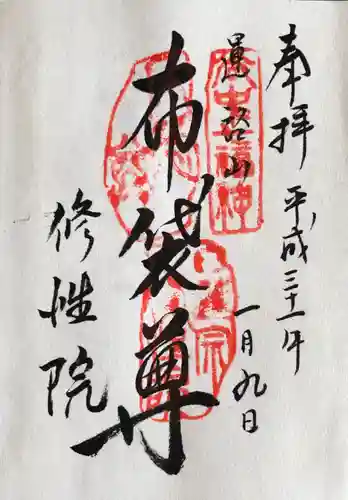 奉拝
平成三十一年
一月九日
運啓山
布袋尊
修性院